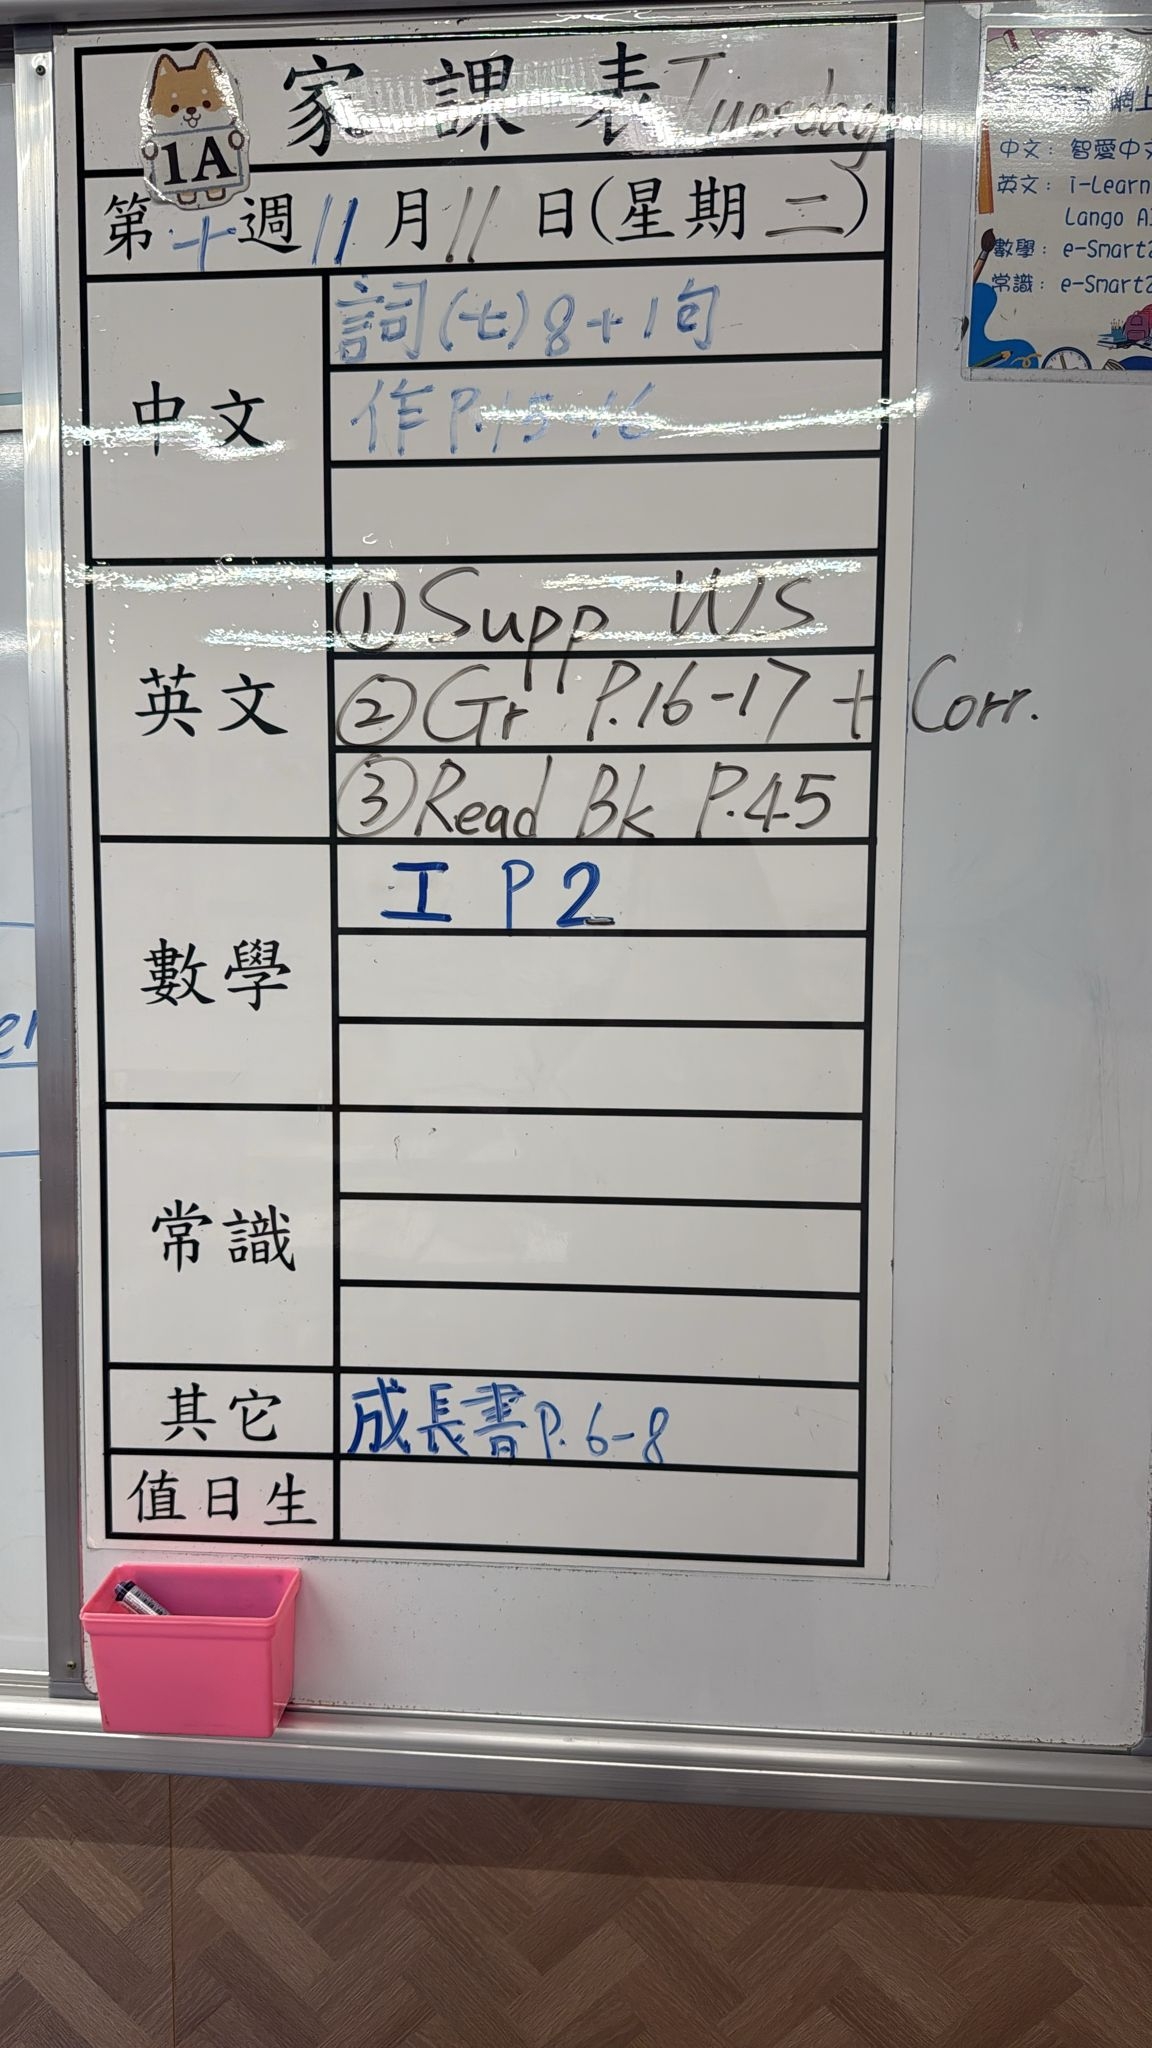 家課表 Tuesday
1A
第十週11月11日(星期二)
中文
詞(七)8+1句
作P.15-16
英文
①Supp WS
②Gr P.16-17 + Corr.
③Read Bk P.45
數學
工 P2
常識
其它
成長書P.6-8
值日生
網上
中文：智愛中文
英文：i-Learn
Lango AI
數學：e-Smart2
常識：e-Smart2
er